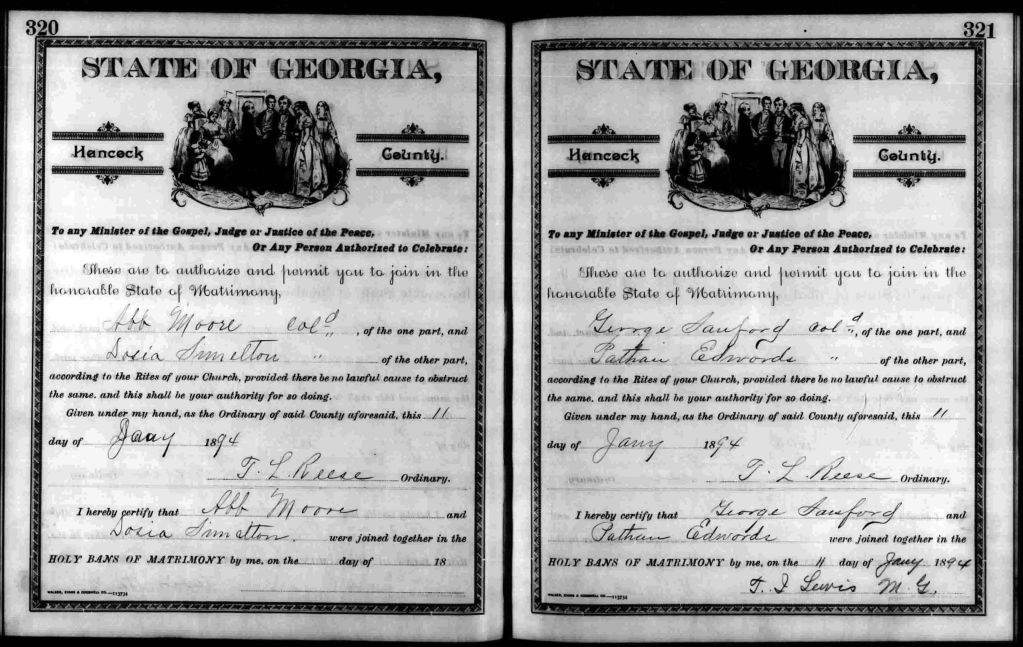 320
STATE OF GEORGIA,
Hancock County.
To any Minister of the Gospel, Judge or Justice of the Peace,
Or Any Person Authorized to Celebrate:
These are to authorize and permit you to join in the
honorable State of Matrimony,
Abb Moore Col'd, of the one part, and
Dosia Simelton " of the other part,
according to the Rites of your Church, provided there be no lawful cause to obstruct
the same. and this shall be your authority for so doing.
Given under my hand, as the Ordinary of said County aforesaid, this 11
day of Jany 1894
T. L. Reese Ordinary.
I hereby certify that Abb Moore and
Dosia Simelton. were joined together in the
HOLY BANS OF MATRIMONY by me, on the day of 18
321
STATE OF GEORGIA,
Hancock County.
To any Minister of the Gospel, Judge or Justice of the Peace,
Or Any Person Authorized to Celebrate:
These are to authorize and permit you to join in the
honorable State of Matrimony,
George Sanford Col'd, of the one part, and
Edwords " of the other part,
according to the Rites of your Church, provided there be no lawful cause to obstruct
the same. and this shall be your authority for so doing.
Given under my hand, as the Ordinary of said County aforesaid, this 11
day of Jany 1894
T. L. Reese Ordinary.
I hereby certify that George Sanford and
Edwords were joined together in the
HOLY BANS OF MATRIMONY by me, on the 11 day of Jany 1894
Lewis M. G.